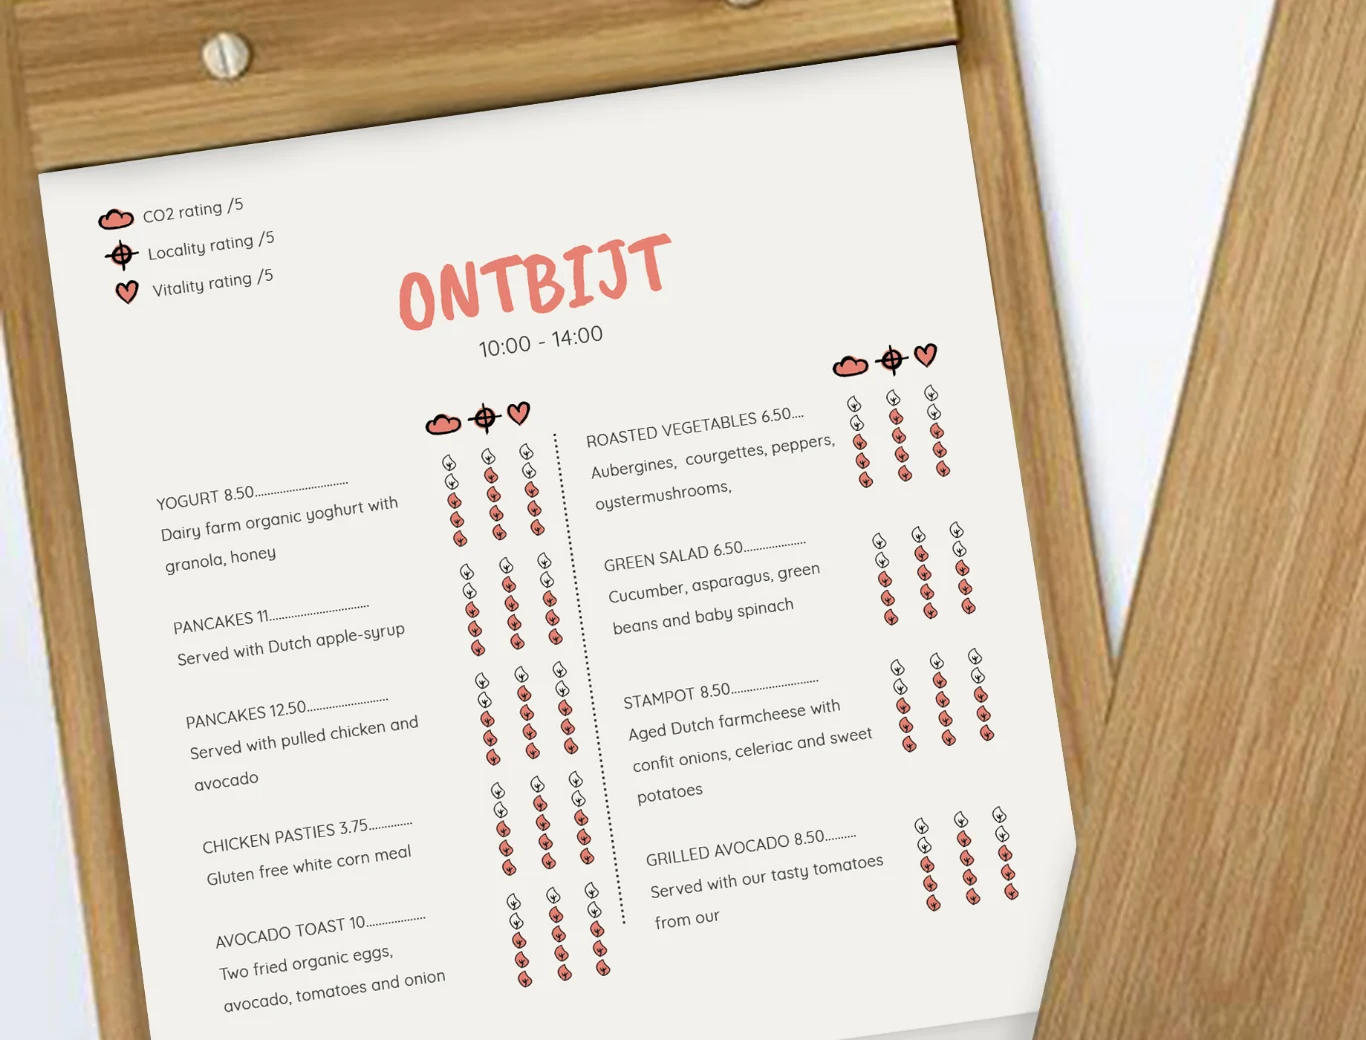 CO2 rating /5
Locality rating /5
Vitality rating /5
ONTBIJT
10:00 - 14:00
YOGURT 8.50.............................
Dairy farm organic yoghurt with
granola, honey
PANCAKES 11...............................
Served with Dutch apple-syrup
PANCAKES 12.50.........................
Served with pulled chicken and
avocado
CHICKEN PASTIES 3.75.............
Gluten free white corn meal
AVOCADO TOAST 10..................
Two fried organic eggs,
avocado, tomatoes and onion
ROASTED VEGETABLES 6.50....
Aubergines, courgettes, peppers,
oystermushrooms,
GREEN SALAD 6.50...................
Cucumber, asparagus, green
beans and baby spinach
STAMPOT 8.50...........................
Aged Dutch farmcheese with
confit onions, celeriac and sweet
potatoes
GRILLED AVOCADO 8.50.........
Served with our tasty tomatoes
from our